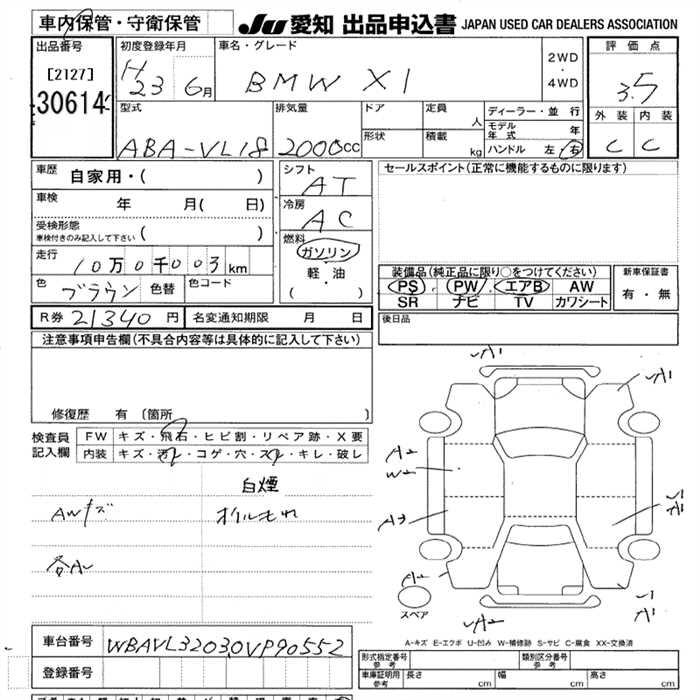 車内保管・守衛保管
JU 愛知 出品申込書 JAPAN USED CAR DEALERS ASSOCIATION
出品番号
[2127]
30614
初度登録年月
H 23 6月
車名・グレード
BMW X1
2WD
・
4WD
評価点
3.5
外装 内装
C C
型式
ABA-VL18
排気量
2000cc
ドア
形状
定員 人
積載 kg
ディーラー・並行
モデル年式 年
ハンドル 左・右
車歴 自家用・( )
車検 年 月( 日)
受検形態
車検付きのみ記入して下さい ( )
走行 10万0千003km
色 ブラウン 色替 色コード
シフト
AT
冷房
AC
燃料
ガソリン
・
軽・油
( )
セールスポイント(正常に機能するものに限ります)
装備品(純正品に限り○をつけてください)
PS PW エアB AW
SR ナビ TV カワシート
新車保証書
有・無
R券 21340円 名変通知期限 月 日
後日品
注意事項申告欄(不具合内容等は具体的に記入して下さい)
修復歴 有 [箇所 ]
検査員記入欄
FW キズ・飛石・ヒビ割・リペア跡・X要
内装 キズ・汚レ・コゲ・穴・スレ・キレ・破レ
白煙
AWキズ オイルもれ
A1
A1
A2
W2
A3
A2
A2
1
A1
スペア
A-キズ E-エクボ U-凹み W-補修跡 S-サビ C-腐食 XX-交換済
車台番号 WBAVL32030VP90552
登録番号
型式指定番号 参考 類別区分番号 参考
車庫証明用 参考 長さ cm 幅 cm 高さ cm